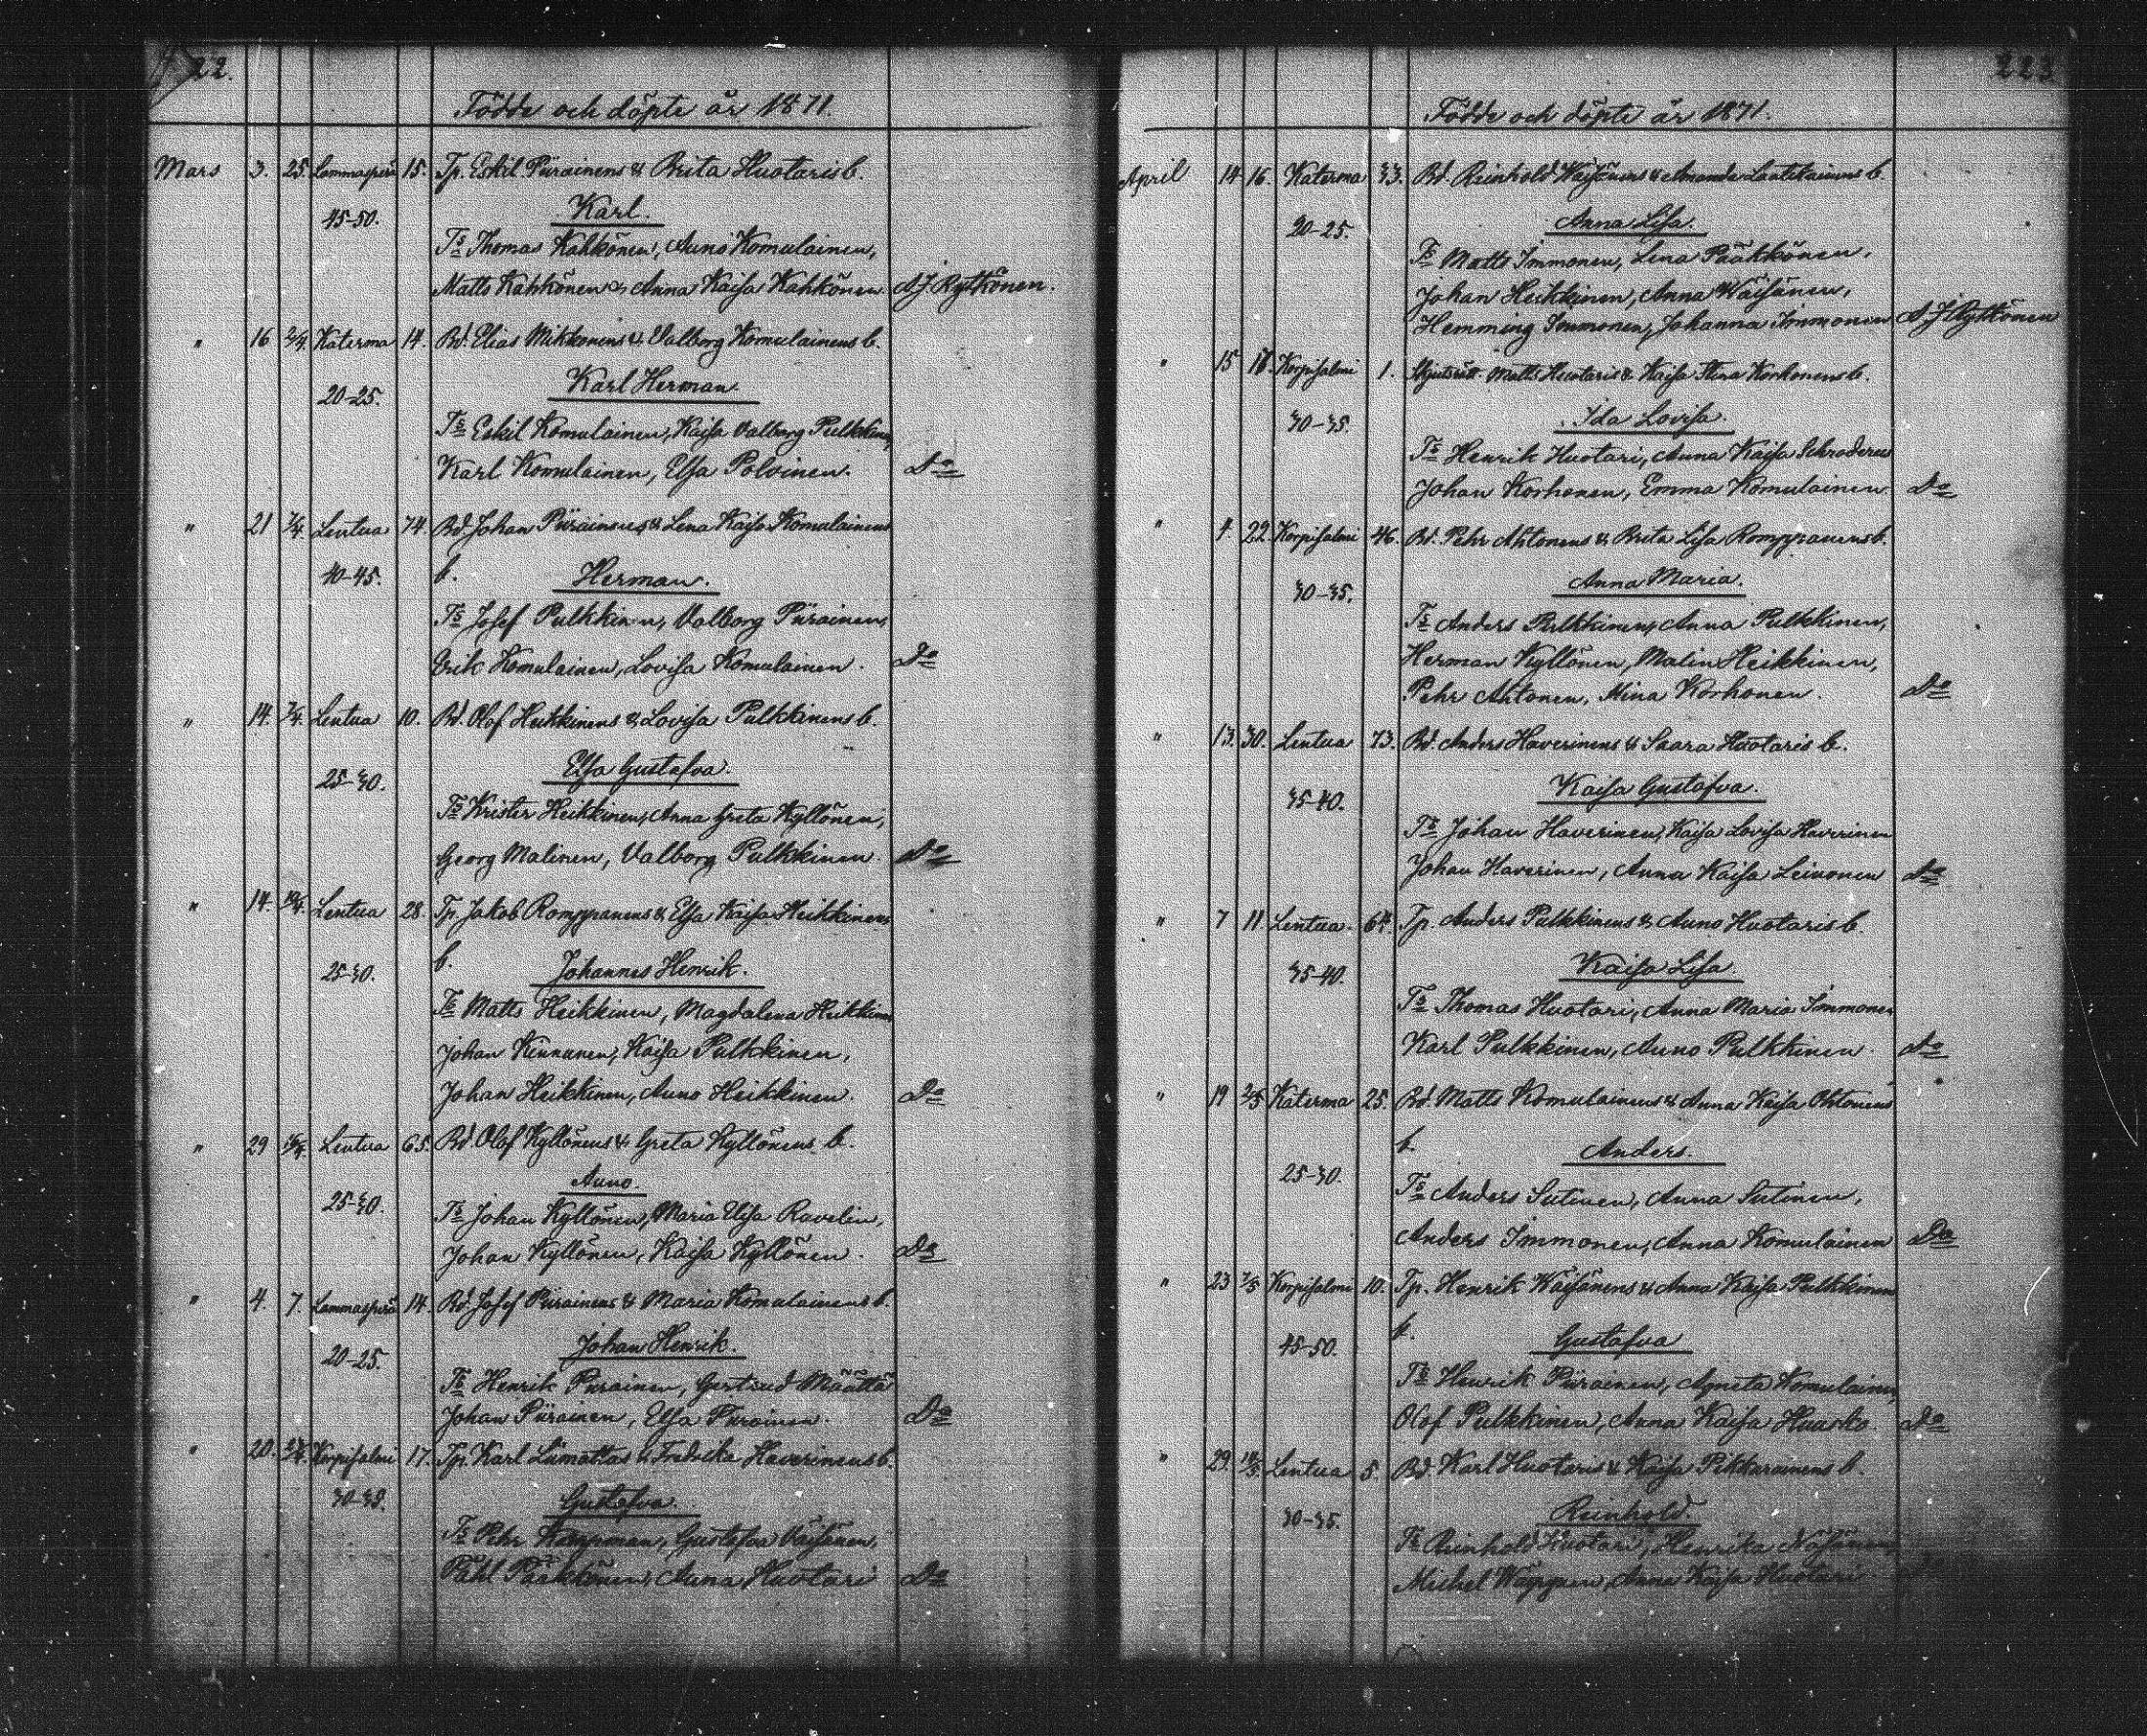 222.
Födde och döpte år 1871.
Mars 3. 25. Lammasperä 15. Tp. Eskil Piirainens & Brita Huotaris b.
45-50. Karl.
Ts Thomas Kähkönen, Auno Komulainen,
Matts Kähkönen & Anna Kaisa Kähkönen. A J Rytkönen.
" 16 2/4. Katerma 14. Bd. Elias Mikkonens & Valborg Komulainens b.
20-25. Karl Herman.
Ts Eskil Komulainen, Kaisa Valborg Pulkkinen,
Karl Komulainen, Elsa Polvinen. Do
" 21 7/4. Lentua 74. Bd. Johan Piirainens & Lena Kaisa Komulainens
40-45. b. Herman.
Ts Josef Pulkkinen, Valborg Piirainen,
Erik Komulainen, Lovisa Komulainen. Do
" 14. 7/4. Lentua 10. Bd. Olof Heikkinens & Lovisa Pulkkinens b.
25-30. Elsa Gustafva.
Ts Krister Heikkinen, Anna Greta Kyllönen,
Georg Malinen, Valborg Pulkkinen. Do
" 14. 10/4. Lentua 28. Tp. Jakob Rompanens & Elsa Kaisa Heikkinens
b.
25-30. Johannes Henrik.
Ts Matts Heikkinen, Magdalena Heikkinen
Johan Kinnunen, Kaisa Pulkkinen,
Johan Heikkinen, Auno Heikkinen. Do
" 29 Lentua 65. Bd. Olof Kyllönens & Greta Kyllönens b.
Auno.
25-30. Ts Johan Kyllönen, Maria Elisa Ravelin,
Johan Kyllönen, Kaisa Kyllönen. Do
" 4. 7. Lammasperä 14. Bd. Josef Piirainens & Maria Komulainens b.
20-25. Johan Henrik.
Ts Henrik Piirainen, Gertrud Määttä
Johan Piirainen, Elsa Piirainen. Do
" 20. Korpisalmi 17. Tp. Karl Liimattas & Fredrika Haverinens b.
30-35. Gustafva.
Ts Pehr Kemppinen, Gustafva Väisänen,
Påhl Pääkkönen, Auna Huotari Do
223
Födde och döpte år 1871.
April 14 16. Katerma 33. Bd. Reinhold Väisänens & Amanda Lantikainens b.
20-25. Anna Lisa.
Ts Matts Immonen, Lena Pääkkönen,
Johan Heikkinen, Anna Väisänen,
Hemming Immonen, Johanna Immonen A J Rytkönen
" 15 16. Korpisalmi 1. Matts Huotaris & Kaisa Stina Korhonens b.
30-35. Ida Lovisa.
Ts Henrik Huotari, Anna Kaisa Schroderus
Johan Korhonen, Emma Komulainen. Do
" 4. 22. Korpisalmi 46. Bd. Pehr Ahtonens & Brita Lisa Romppanens b.
30-35. Anna Maria.
Ts Anders Pulkkinen, Anna Pulkkinen,
Herman Kyllönen, Malin Heikkinen,
Pehr Ahtonen, Mina Korhonen. Do
" 13. 30. Lentua 73. Bd. Anders Haverinens & Saara Huotaris b.
35-40. Kaisa Gustafva.
Ts Johan Haverinen, Kaisa Lovisa Haverinen
Johan Haverinen, Anna Kaisa Leinonen Do
" 7 11. Lentua. 64. Tp. Anders Pulkkinens & Auno Huotaris b.
35-40. Kaisa Lisa.
Ts Thomas Huotari, Anna Maria Immonen
Karl Pulkkinen, Auno Pulkkinen. Do
" 19 2/5 Katerma 25. Bd. Matts Komulainens & Anna Kaisa Ohtonens
b. Anders.
25-30. Ts Anders Sutinen, Anna Sutinen,
Anders Immonen, Anna Komulainen Do
" 23 7/5 Korpisalmi 10. Tp. Henrik Väisänens & Anna Kaisa Pulkkinens
b.
45-50. Gustafva
Ts Henrik Piirainen, Agneta Komulainen,
Olof Pulkkinen, Anna Kaisa Huusko. Do
" 29. 14/5 Lentua 5. Bd. Karl Huotaris & Kaisa Pikkarainens b.
30-35. Reinhold.
Ts Reinhold Huotari, Henrika Väisänen,
Michel Wäyrynen, Anna Kaisa Huotari. Do